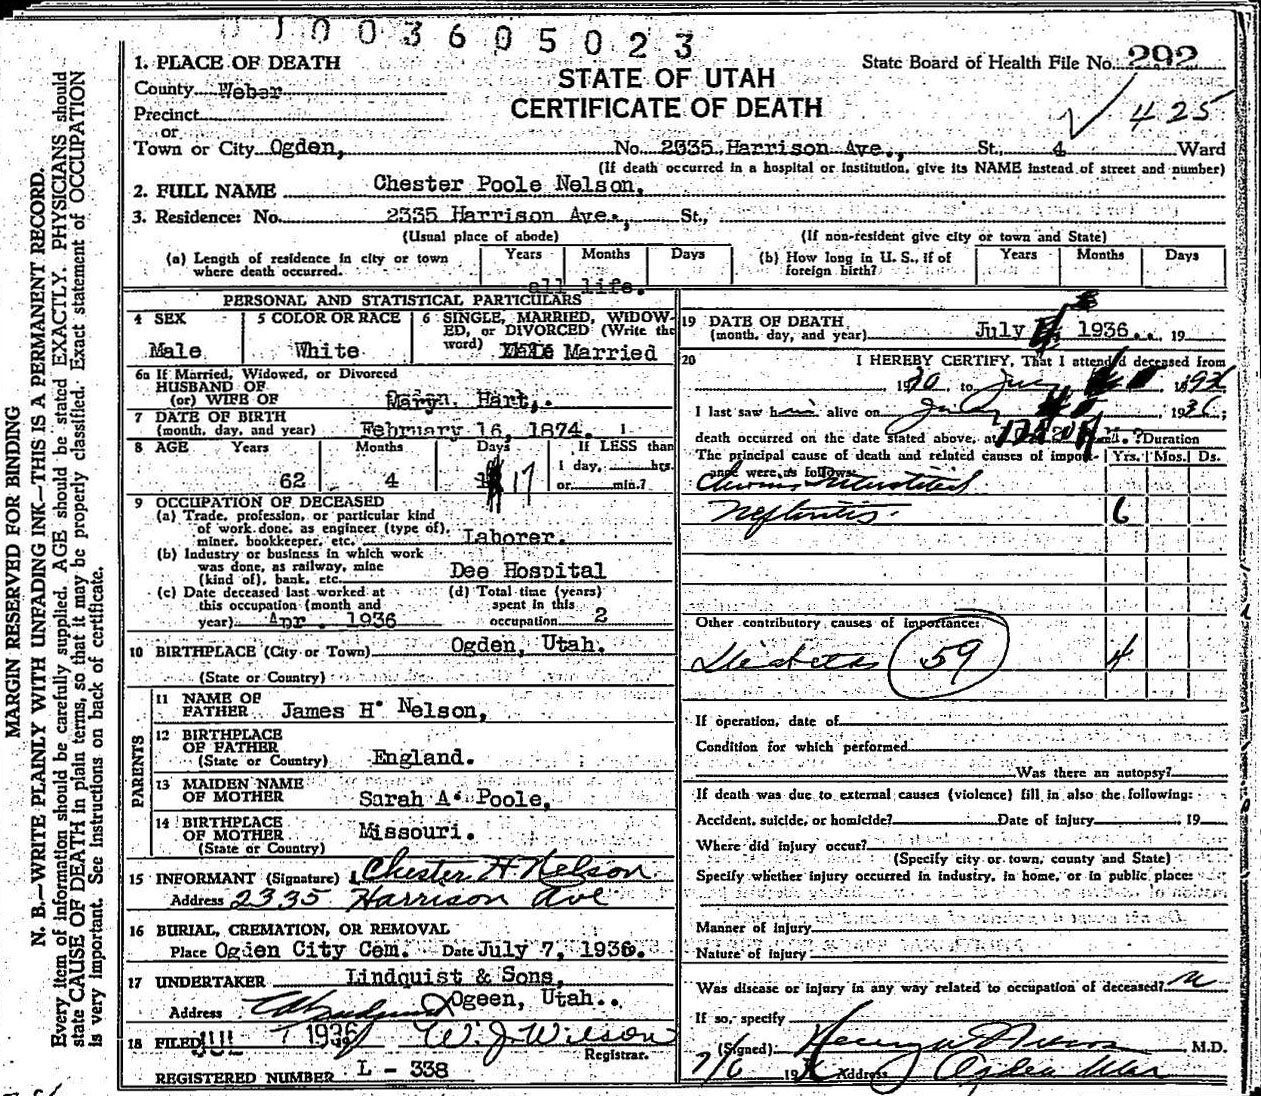 1003605023
1. PLACE OF DEATH
State Board of Health File No. 292
STATE OF UTAH
CERTIFICATE OF DEATH
County Weber
425
Precinct
or
Town or City Ogden, No. 2335 Harrison Ave., St. 4 Ward
(If death occurred in a hospital or institution, give its NAME instead of street and number)
2. FULL NAME Chester Poole Nelson,
3. Residence: No. 2335 Harrison Ave., St.,
(Usual place of abode) (If non-resident give city or town and State)
(a) Length of residence in city or town where death occurred. Years Months Days
all life.
(b) How long in U. S., if of foreign birth? Years Months Days
PERSONAL AND STATISTICAL PARTICULARS
4 SEX Male
5 COLOR OR RACE White
6 SINGLE, MARRIED, WIDOW-
ED, or DIVORCED (Write the
word) Married
6a If Married, Widowed, or Divorced
HUSBAND OF
(or) WIFE OF Mary Hart,.
7 DATE OF BIRTH
(month, day, and year) February 16, 1874.
8 AGE Years Months Days If LESS than
1 day, hrs.
62 4 17 or min.?
9 OCCUPATION OF DECEASED
(a) Trade, profession, or particular kind
of work done, as engineer (type of),
miner, bookkeeper, etc. Laborer.
(b) Industry or business in which work
was done, as railway, mine
(kind of), bank, etc. Dee Hospital
(c) Date deceased last worked at
this occupation (month and
year) Apr. 1936
(d) Total time (years)
spent in this
occupation 2
10 BIRTHPLACE (City or Town) Ogden, Utah.
(State or Country)
PARENTS
11 NAME OF
FATHER James H. Nelson,
12 BIRTHPLACE
OF FATHER
(State or Country) England.
13 MAIDEN NAME
OF MOTHER Sarah A. Poole,
14 BIRTHPLACE
OF MOTHER Missouri.
(State or Country)
15 INFORMANT (Signature) Chester H Nelson
Address 2335 Harrison Ave
16 BURIAL, CREMATION, OR REMOVAL
Place Ogden City Cem. Date July 7, 1936.
17 UNDERTAKER Lindquist & Sons,
Address Ogeen, Utah..
18 FILED JUL 7 1936 W. J. Wilson
Registrar.
REGISTERED NUMBER L - 338
19 DATE OF DEATH
(month, day, and year) July 1936.. 19
20 I HEREBY CERTIFY, That I attended deceased from
1930 to July 1936
I last saw him alive on July 1936;
death occurred on the date stated above, at m. ? Duration
The principal cause of death and related causes of import-
ance were as follows: Yrs. Mos. Ds.
Chronic Interstitial
Nephritis 6
Other contributory causes of importance:
Diabetes 59 4
If operation, date of
Condition for which performed
Was there an autopsy?
If death was due to external causes (violence) fill in also the following:
Accident, suicide, or homicide? Date of injury 19
Where did injury occur?
(Specify city or town, county and State)
Specify whether injury occurred in industry, in home, or in public place:
Manner of injury
Nature of injury
Was disease or injury in any way related to occupation of deceased?
If so, specify
(Signed) M.D.
7/6 19 Address Ogden Utah
MARGIN RESERVED FOR BINDING
N. B.—WRITE PLAINLY WITH UNFADING INK—THIS IS A PERMANENT RECORD.
Every item of information should be carefully supplied. AGE should be stated EXACTLY. PHYSICIANS should
state CAUSE OF DEATH in plain terms, so that it may be properly classified. Exact statement of OCCUPATION
is very important. See instructions on back of certificate.